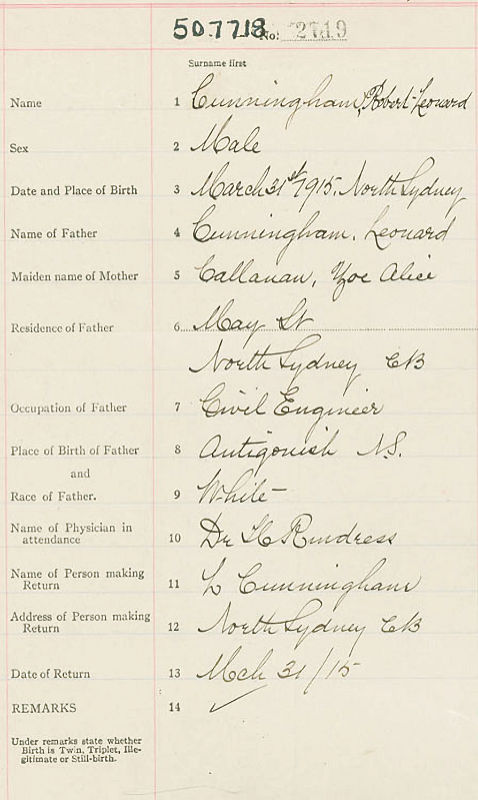 507718 No. 2719
Surname first
Name 1 Cunningham, Robert Leonard
Sex 2 Male
Date and Place of Birth 3 March 31st 1915. North Sydney
Name of Father 4 Cunningham, Leonard
Maiden name of Mother 5 Callanan, Zoe Alice
Residence of Father 6 May St
North Sydney CB
Occupation of Father 7 Civil Engineer
Place of Birth of Father 8 Antigonish N.S.
and
Race of Father. 9 White
Name of Physician in
attendance 10 Dr Rindress
Name of Person making
Return 11 L Cunningham
Address of Person making
Return 12 North Sydney CB
Date of Return 13 Mch 31/15
REMARKS 14
Under remarks state whether
Birth is Twin, Triplet, Ille-
gitimate or Still-birth.